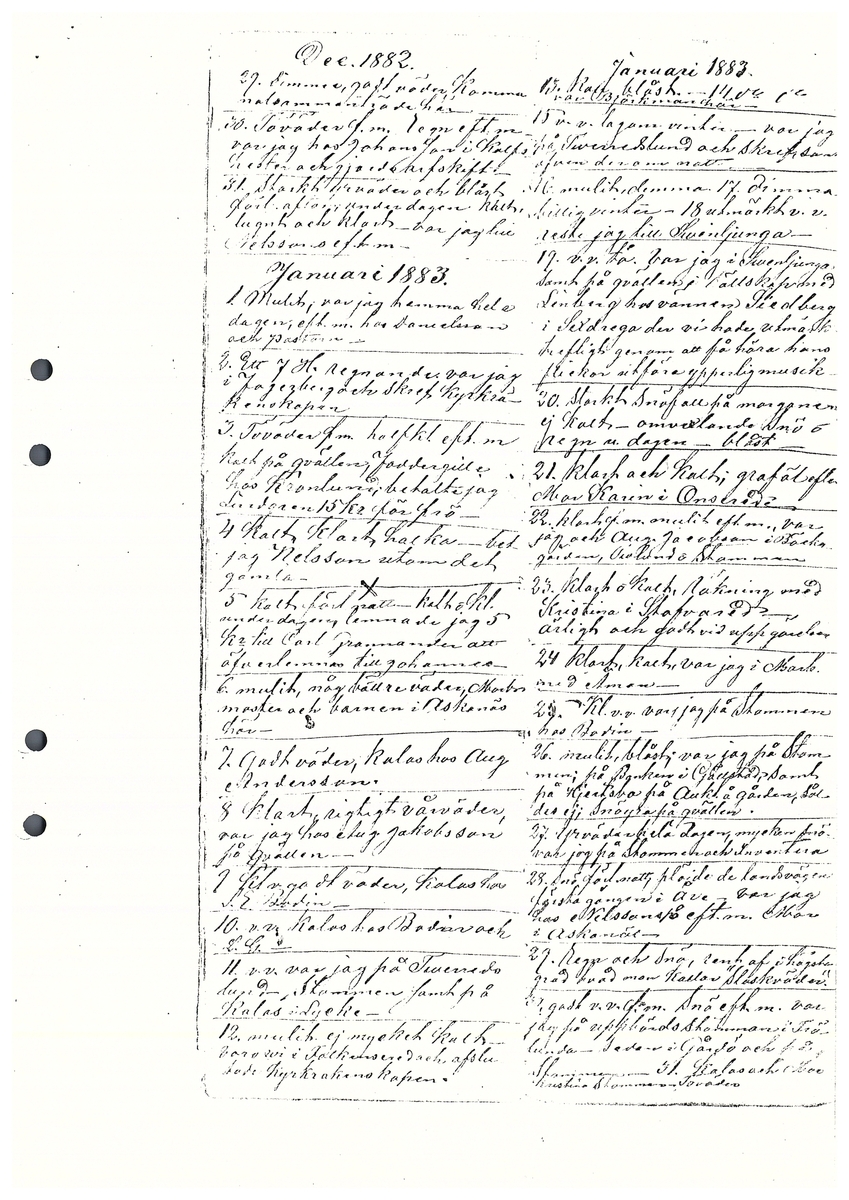 Dec. 1882.
29. dimma, godt väder, Kommu
nalsammanträde här
30. Töväder f.m. Regn eft. m
var jag hos Johans Jon i Kalfs
och gjorde arfskifte
31. Starkt urväder och blåst
förl. afton, under dagen kallt,
lugnt och klart — var jag till
Nelssons eft. m —
Januari 1883.
1. Mulit, var jag hemma hela
dagen, eft. m. hos Danielsson
och pastorn —
2. Ett 7 H. regnande, var jag
i Fagerberg och skref Kyrkrä
kenskaper
3. Töväder f.m. half kl. eft. m
kalt på qvällen, Faddergille
hos Kronlund, betalte jag
15 kr för frö —
4 Kalt, Klart, halka — bet
jag Nelsson utom det
gamla —
5 kalt, förl natt — kalt o kl.
under dagen, lemnade jag 5
kr till Carl Grannander att
öfverlemnas till Johannes
6. mulit, någ bättre väder, Mor
moster och barnen i Askanäs
här —
7. Godt väder, Kalas hos Aug
Andersson.
8 Klart, rigtigt vårväder,
var jag hos Aug Jakobsson
på qvällen —
9 godt väder, Kalas hos
J. E. Bodin —
10. v.v. Kalas hos Bodin och
11. v.v. var jag på Tverreds
lund, Stommen samt på
Kalas i Lycke —
12. mulit ej mycket kalt —
voro vi i Falkensered och afslu
tade Kyrkräkenskapen.
Januari 1883.
13. Kalt, blåst — 14.
var Björkman här —
15 v. v. lagom vinter — var jag
på Tverredslund och skref, samt
äfven der om natt
16. mulit, demma. 17. Dimma
billig vinter — 18 utmärkt v. v.
reste jag till Svenljunga —
19. v.v. få. var jag i Svenljunga
samt på qvällen i sällskap med
Linberg hos vännen Siedberg
i Sexdrega der vi hade utmärkt
trefligt genom att få höra hans
flickor utföra ypperlig musik —
20. Starkt snöfall på morgonen
ej kalt — omvexlande snö o
regn u. dagen — blåst —
21. klart och kalt; grafölefter
Mor Karin i Onsered
22. klart f.m. mulit eft m., var
jag och Aug. Jacobson i Backa
gården, Stommen
23. Klart o kalt, Räkning med
Kristina i Stafvared —
ärligt och godt vid uppgörelsen
24 Klart, kalt, var jag i Mark
med Aman —
25. Kl. v.v. var jag på Stommen
hos Bodin
26. mulit, blåst; var jag på Stom
men; på Banken i Gällstad, samt
på Auktå gården,
des ej; snögfa på qvällen.
27. Urväder hela dagen, mycken snö
var jag på Stommen och Inventera
28. snö förl. natt, plöjde de landsvägen
första gången i Åre — var jag
hos Nilssons på eft. m. Mor
i Askanäs —
29. Regn och Snö, rent af i högsta
grad hvad man kallar "Slaskväder."
30, godt v. v. f.m. snö eft. m. var
jag på uppbördsstämman i Frö
lunda — sedan i Gårdö och på
Stommen — 31. Kalas och Mor
Kristina Stommen Töväder